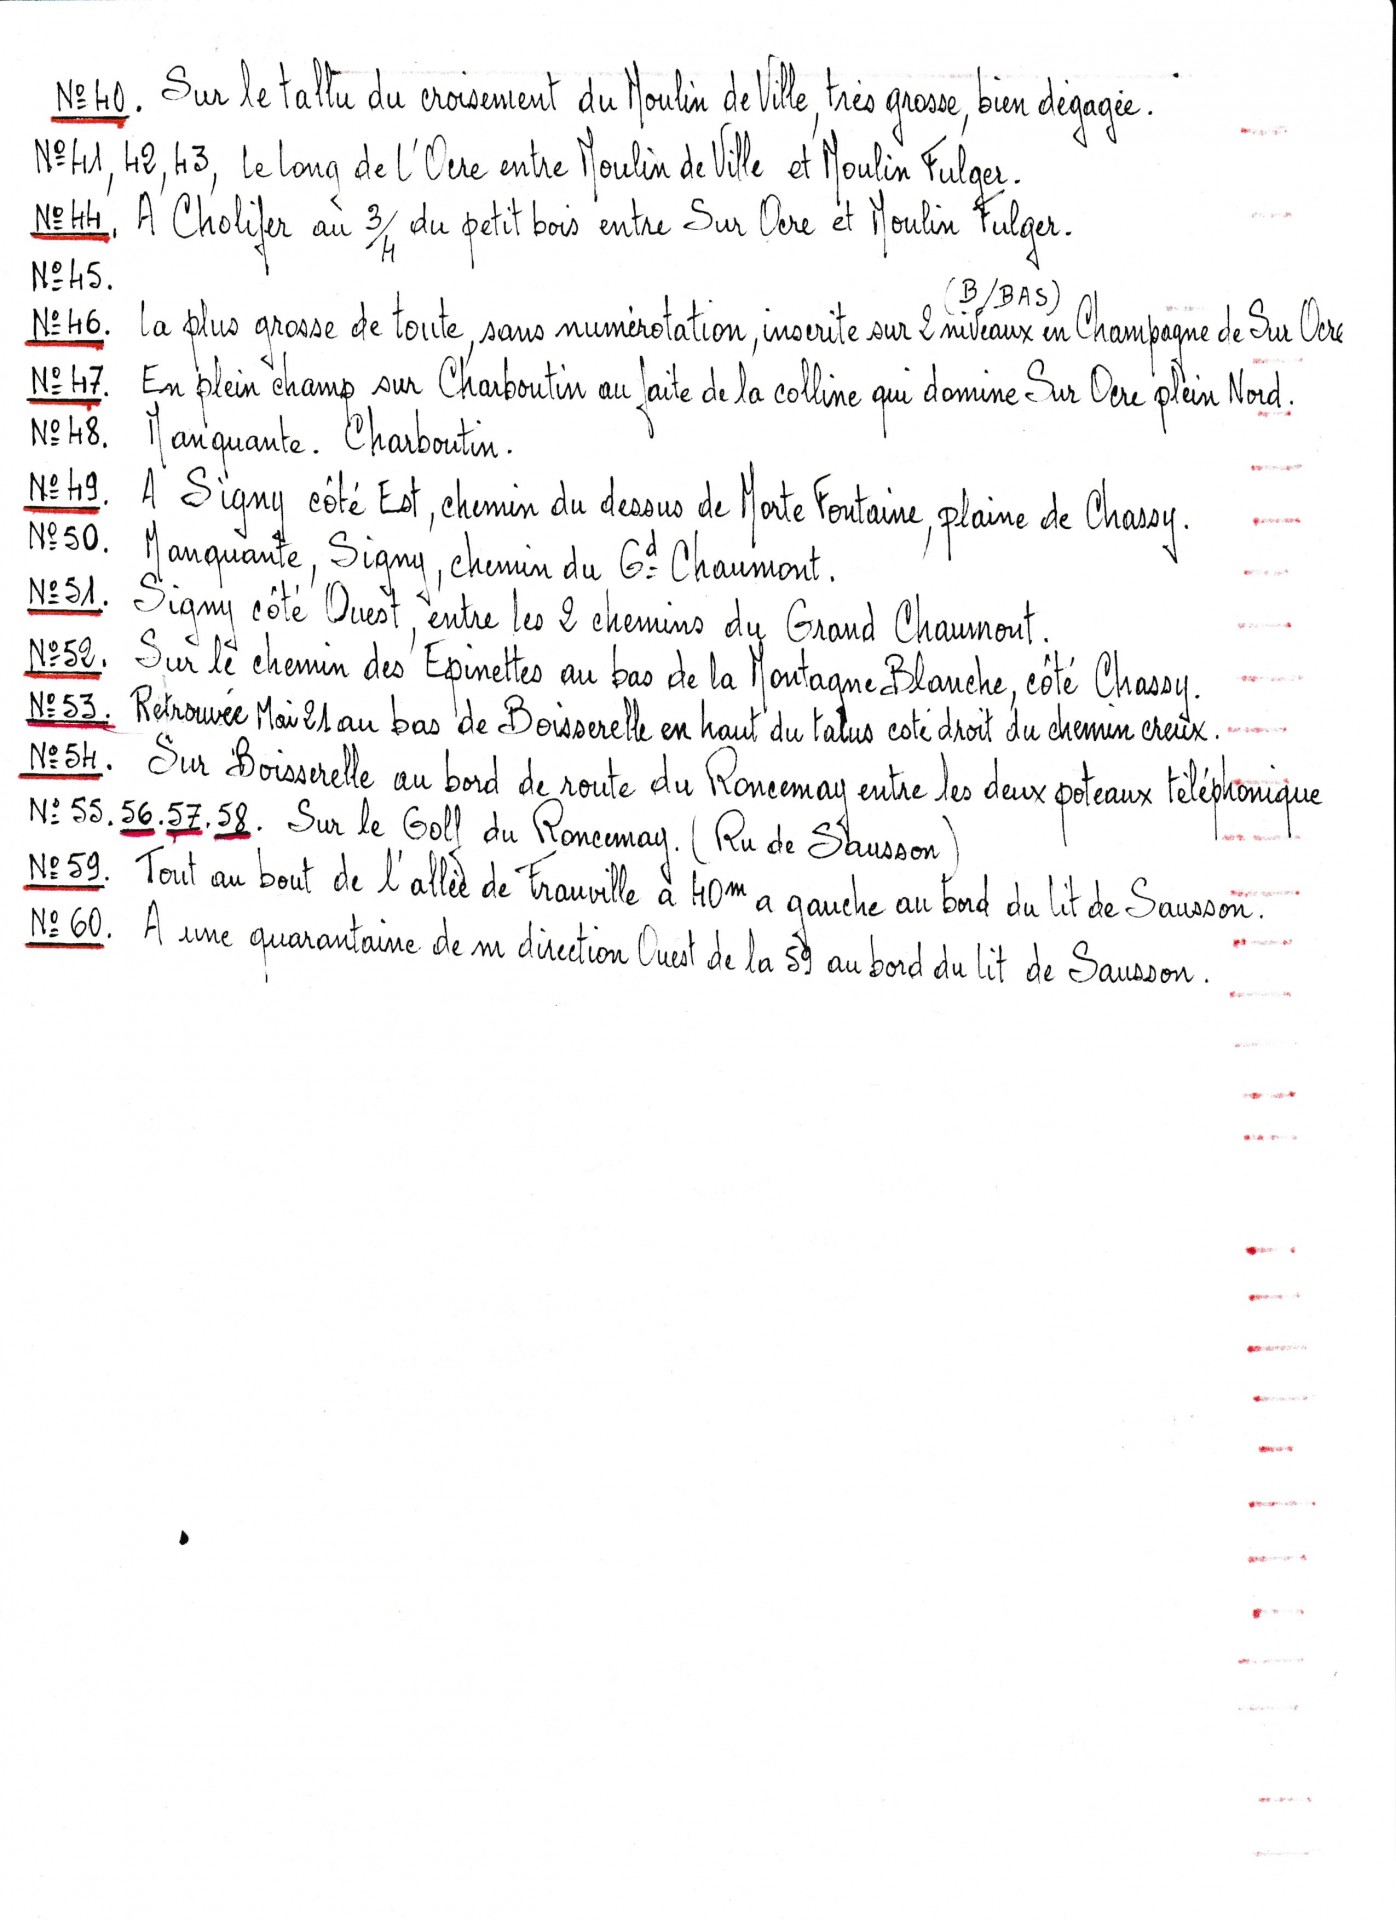 Nº 40. Sur le tallu du croisement du Moulin de Ville, très grosse, bien dégagée.
Nº 41, 42, 43, le long de l'Ocre entre Moulin de Ville et Moulin Fulger.
Nº 44. A Cholifer au 3/4 du petit bois entre Sur Ocre et Moulin Fulger.
Nº 45.
(B/BAS)
Nº 46. La plus grosse de toute, sans numérotation, inscrite sur 2 niveaux en Champagne de Sur Ocre
Nº 47. En plein champ sur Charboutin au faite de la colline qui domine Sur Ocre plein Nord.
Nº 48. Manquante. Charboutin.
Nº 49. A Signy côté Est, chemin du dessus de Morte Fontaine, plaine de Chassy.
Nº 50. Manquante, Signy, chemin du Gd Chaumont.
Nº 51. Signy côté Ouest, entre les 2 chemins du Grand Chaumont.
Nº 52. Sur le chemin des Epinettes au bas de la Montagne Blanche, côté Chassy.
Nº 53. Retrouvée Mai 21 au bas de Boisserelle en haut du talus coté droit du chemin creux.
Nº 54. Sur Boisserelle au bord de route du Roncemay entre les deux poteaux téléphonique
Nº 55. 56. 57. 58. Sur le Golf du Roncemay. (Ru de Sausson)
Nº 59. Tout au bout de l'allée de Franville à 40m a gauche au bord du lit de Sausson.
Nº 60. A une quarantaine de m direction Ouest de la 59 au bord du lit de Sausson.